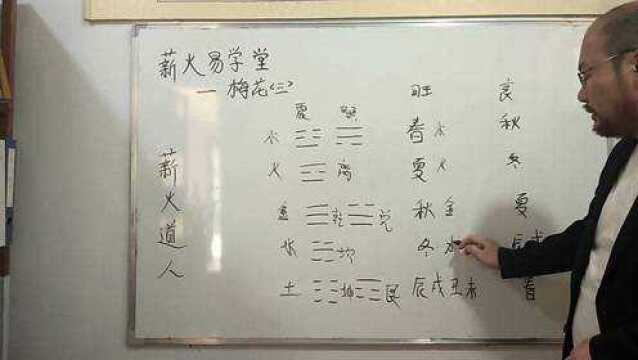 薪火易学堂
一 梅花<三>
旺 衰
震 巽
木 春木 秋
火 离 夏火 冬
金 乾 兑 秋金 夏
水 坎 冬水 辰戌
土 坤 艮 辰戌丑未 春
薪火道人